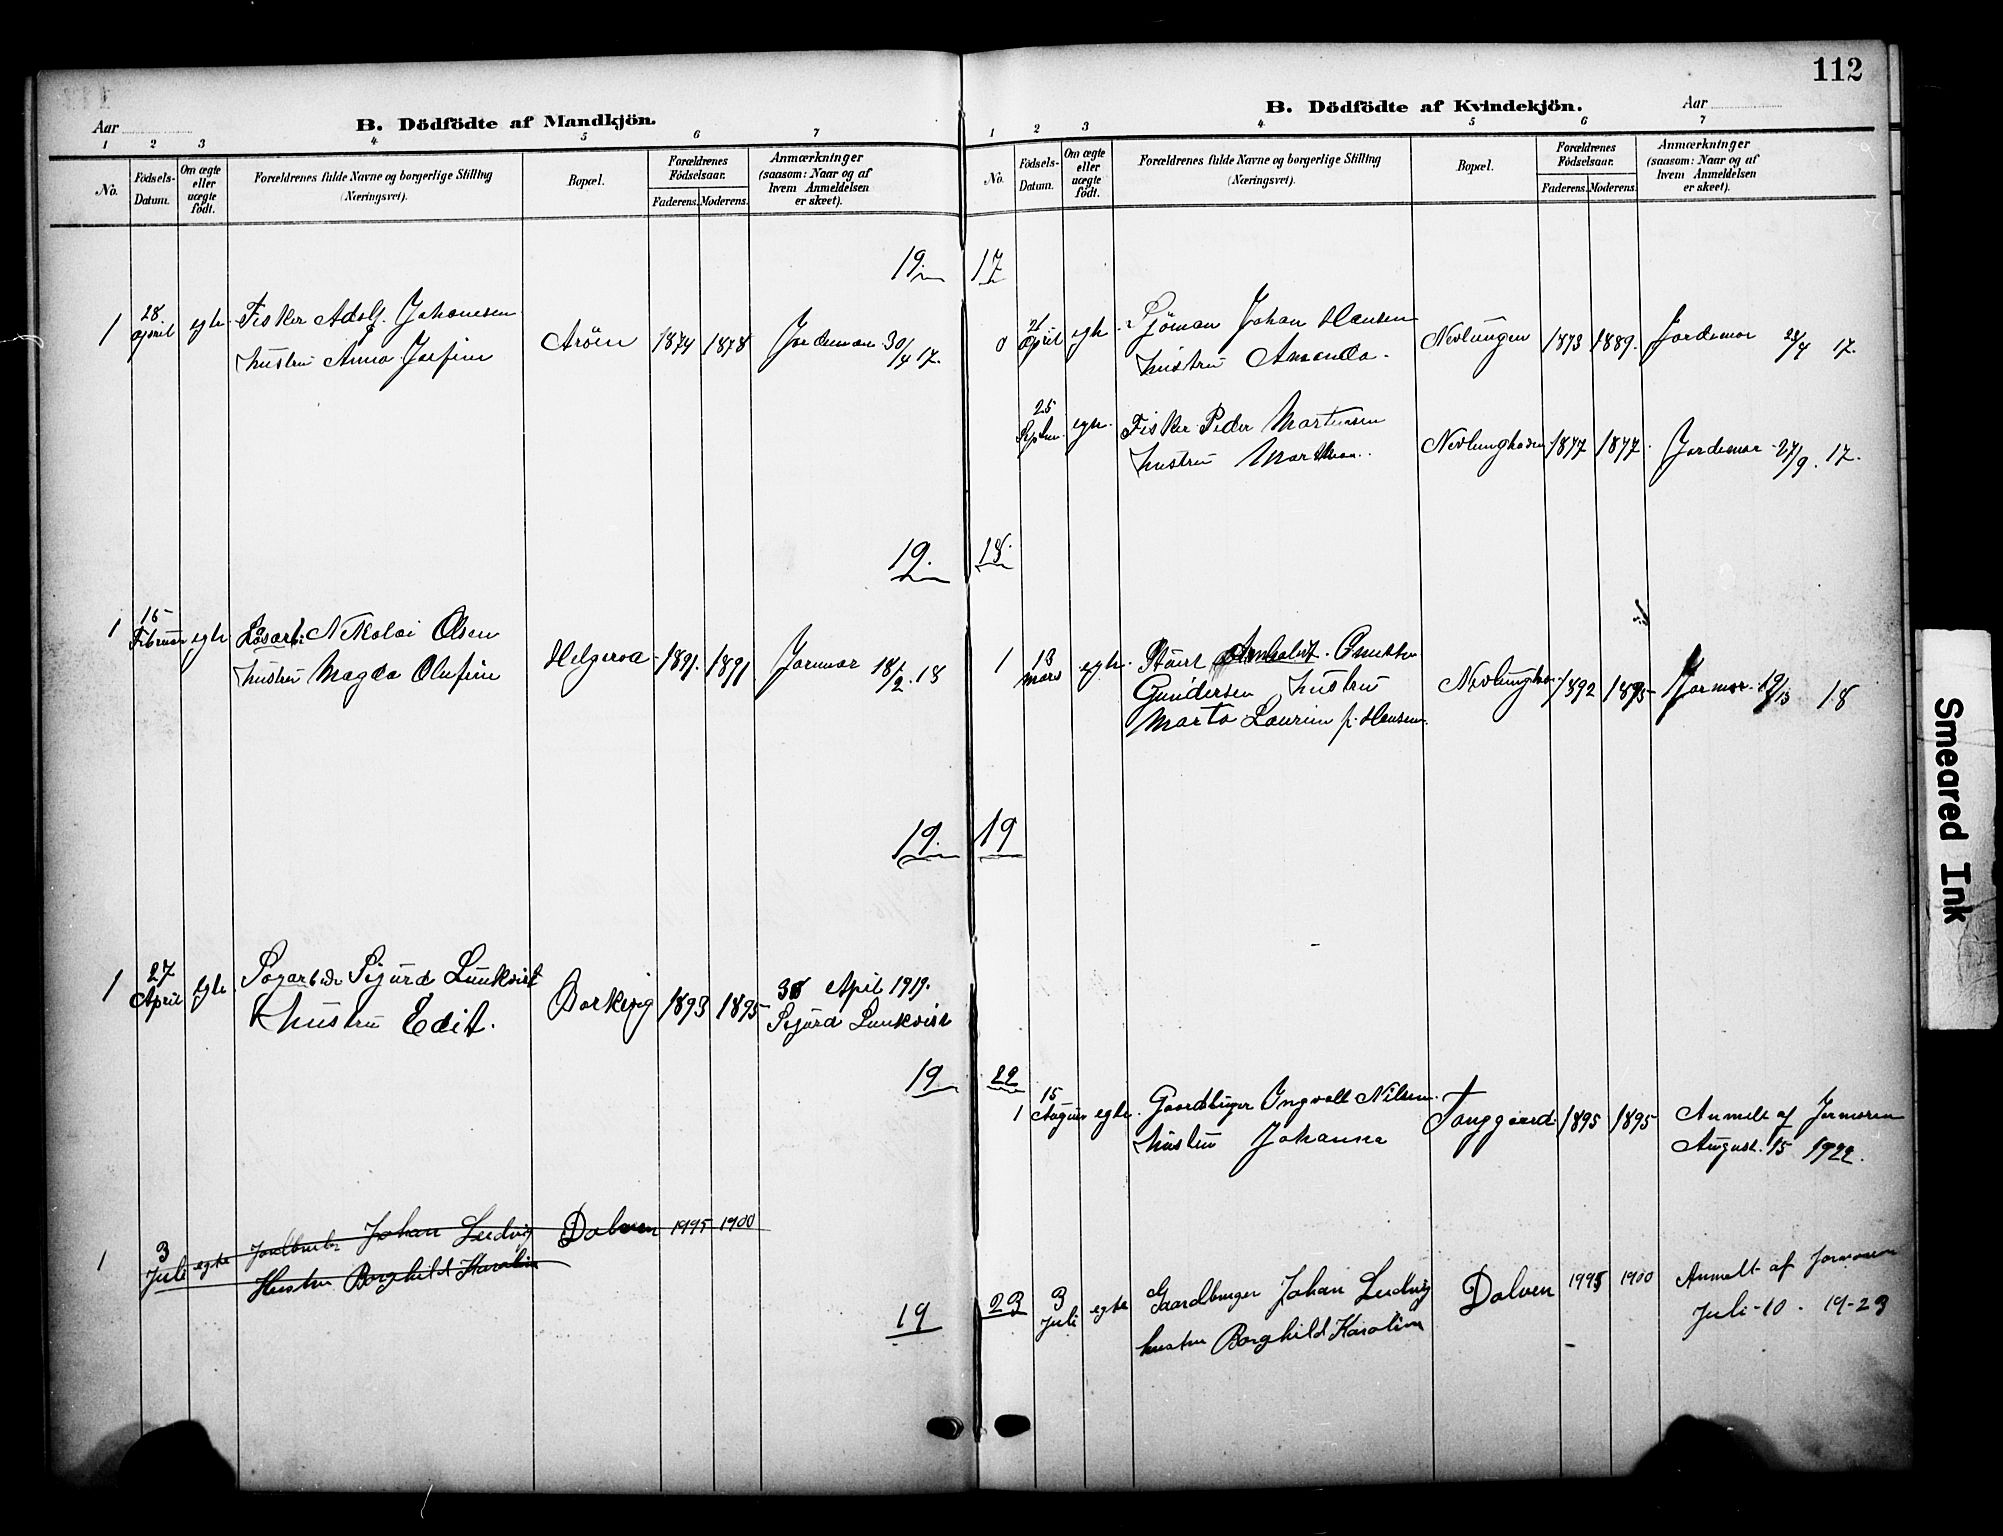 112
Aar
B. Dödfödte af Mandkjön.
1 2 3 4 5 6 7
No.
Födsels-
Datum.
Om ægte
eller
uægte
födt.
Forældrenes fulde Navne og borgerlige Stilling
(Næringsvei).
Bopæl.
Forældrenes
Födselsaar.
Faderens. Moderens.
Anmærkninger
(saasom: Naar og af
hvem Anmeldelsen
er skeet).
19
1 28 april egte Fisker Adolf Johanesen
hustru Anna Josfine
Aröen 1874 1878 Jordemor 30/4 17.
19.
1 15 Februar egte Løsarb: Nikolai Olsen
hustru Magda Olufine
Helgeroa 1891. 1891 Jormor 18/2. 18
19.
1 27 April egte Sigurd Lunkvist
hustru Edit.
Barkevig 1893 1895
30 April 1919.
Sigurd Lunkvist
19
1 3 Juli egte Johan Ludvig
Hustru Borghild Karoline
Dolven 1995 1900
19
B. Dödfödte af Kvindekjön.
Aar
1 2 3 4 5 6 7
No.
Födsels-
Datum.
Om ægte
eller
uægte
födt.
Forældrenes fulde Navne og borgerlige Stilling
(Næringsvei).
Bopæl.
Forældrenes
Födselsaar.
Faderens. Moderens.
Anmærkninger
(saasom: Naar og af
hvem Anmeldelsen
er skeet).
17
21 April egte Sjöman Johan Hansen
hustru Amanda.
Nevlungen 1873 1889. Jordemor 23/4 17.
25 Septem. egte. Fisker Peder Martinsen
hustru Marthea.
Nevlunghavn 1877 1877. Jordemor 27/9. 17.
18.
1 18 mars egte.
Gundersen hustru
Marta Laurine f. Hansen.
Nevlunghavn 1892 1895 Jormor 19/3 18
19
22
1 15 August egte. Gaardbruger Ingvald Nilsen.
hustru Johanne
Fanggaard 1895 1895 Anmelt af Jormoren
August. 15 1922.
23 3 Juli egte Gaardbruger Johan Ludvig
hustru Borghild Karoline
Dolven 1995 1900 Anmelt af Jormoren
Juli-10. 19-23
Smeared Ink